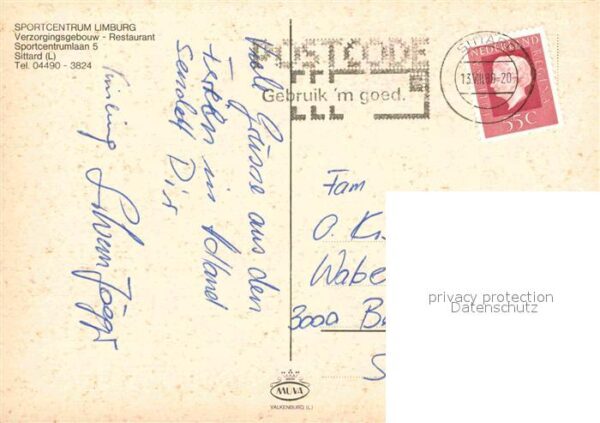 SPORTCENTRUM LIMBURG
Verzorgingsgebouw - Restaurant
Sportcentrumlaan 5
Sittard (L)
Tel. 04490 - 3824
POSTCODE
Gebruik 'm goed.
SITTARD
13.VIII.80-20
NEDERLAND
55c
Viele Grüsse aus den
Ferien in Holland
sendet Dir
Familie
Fam
O. K
Wabe
3000 B
S
privacy protection
Datenschutz
MUVA
VALKENBURG (L.)